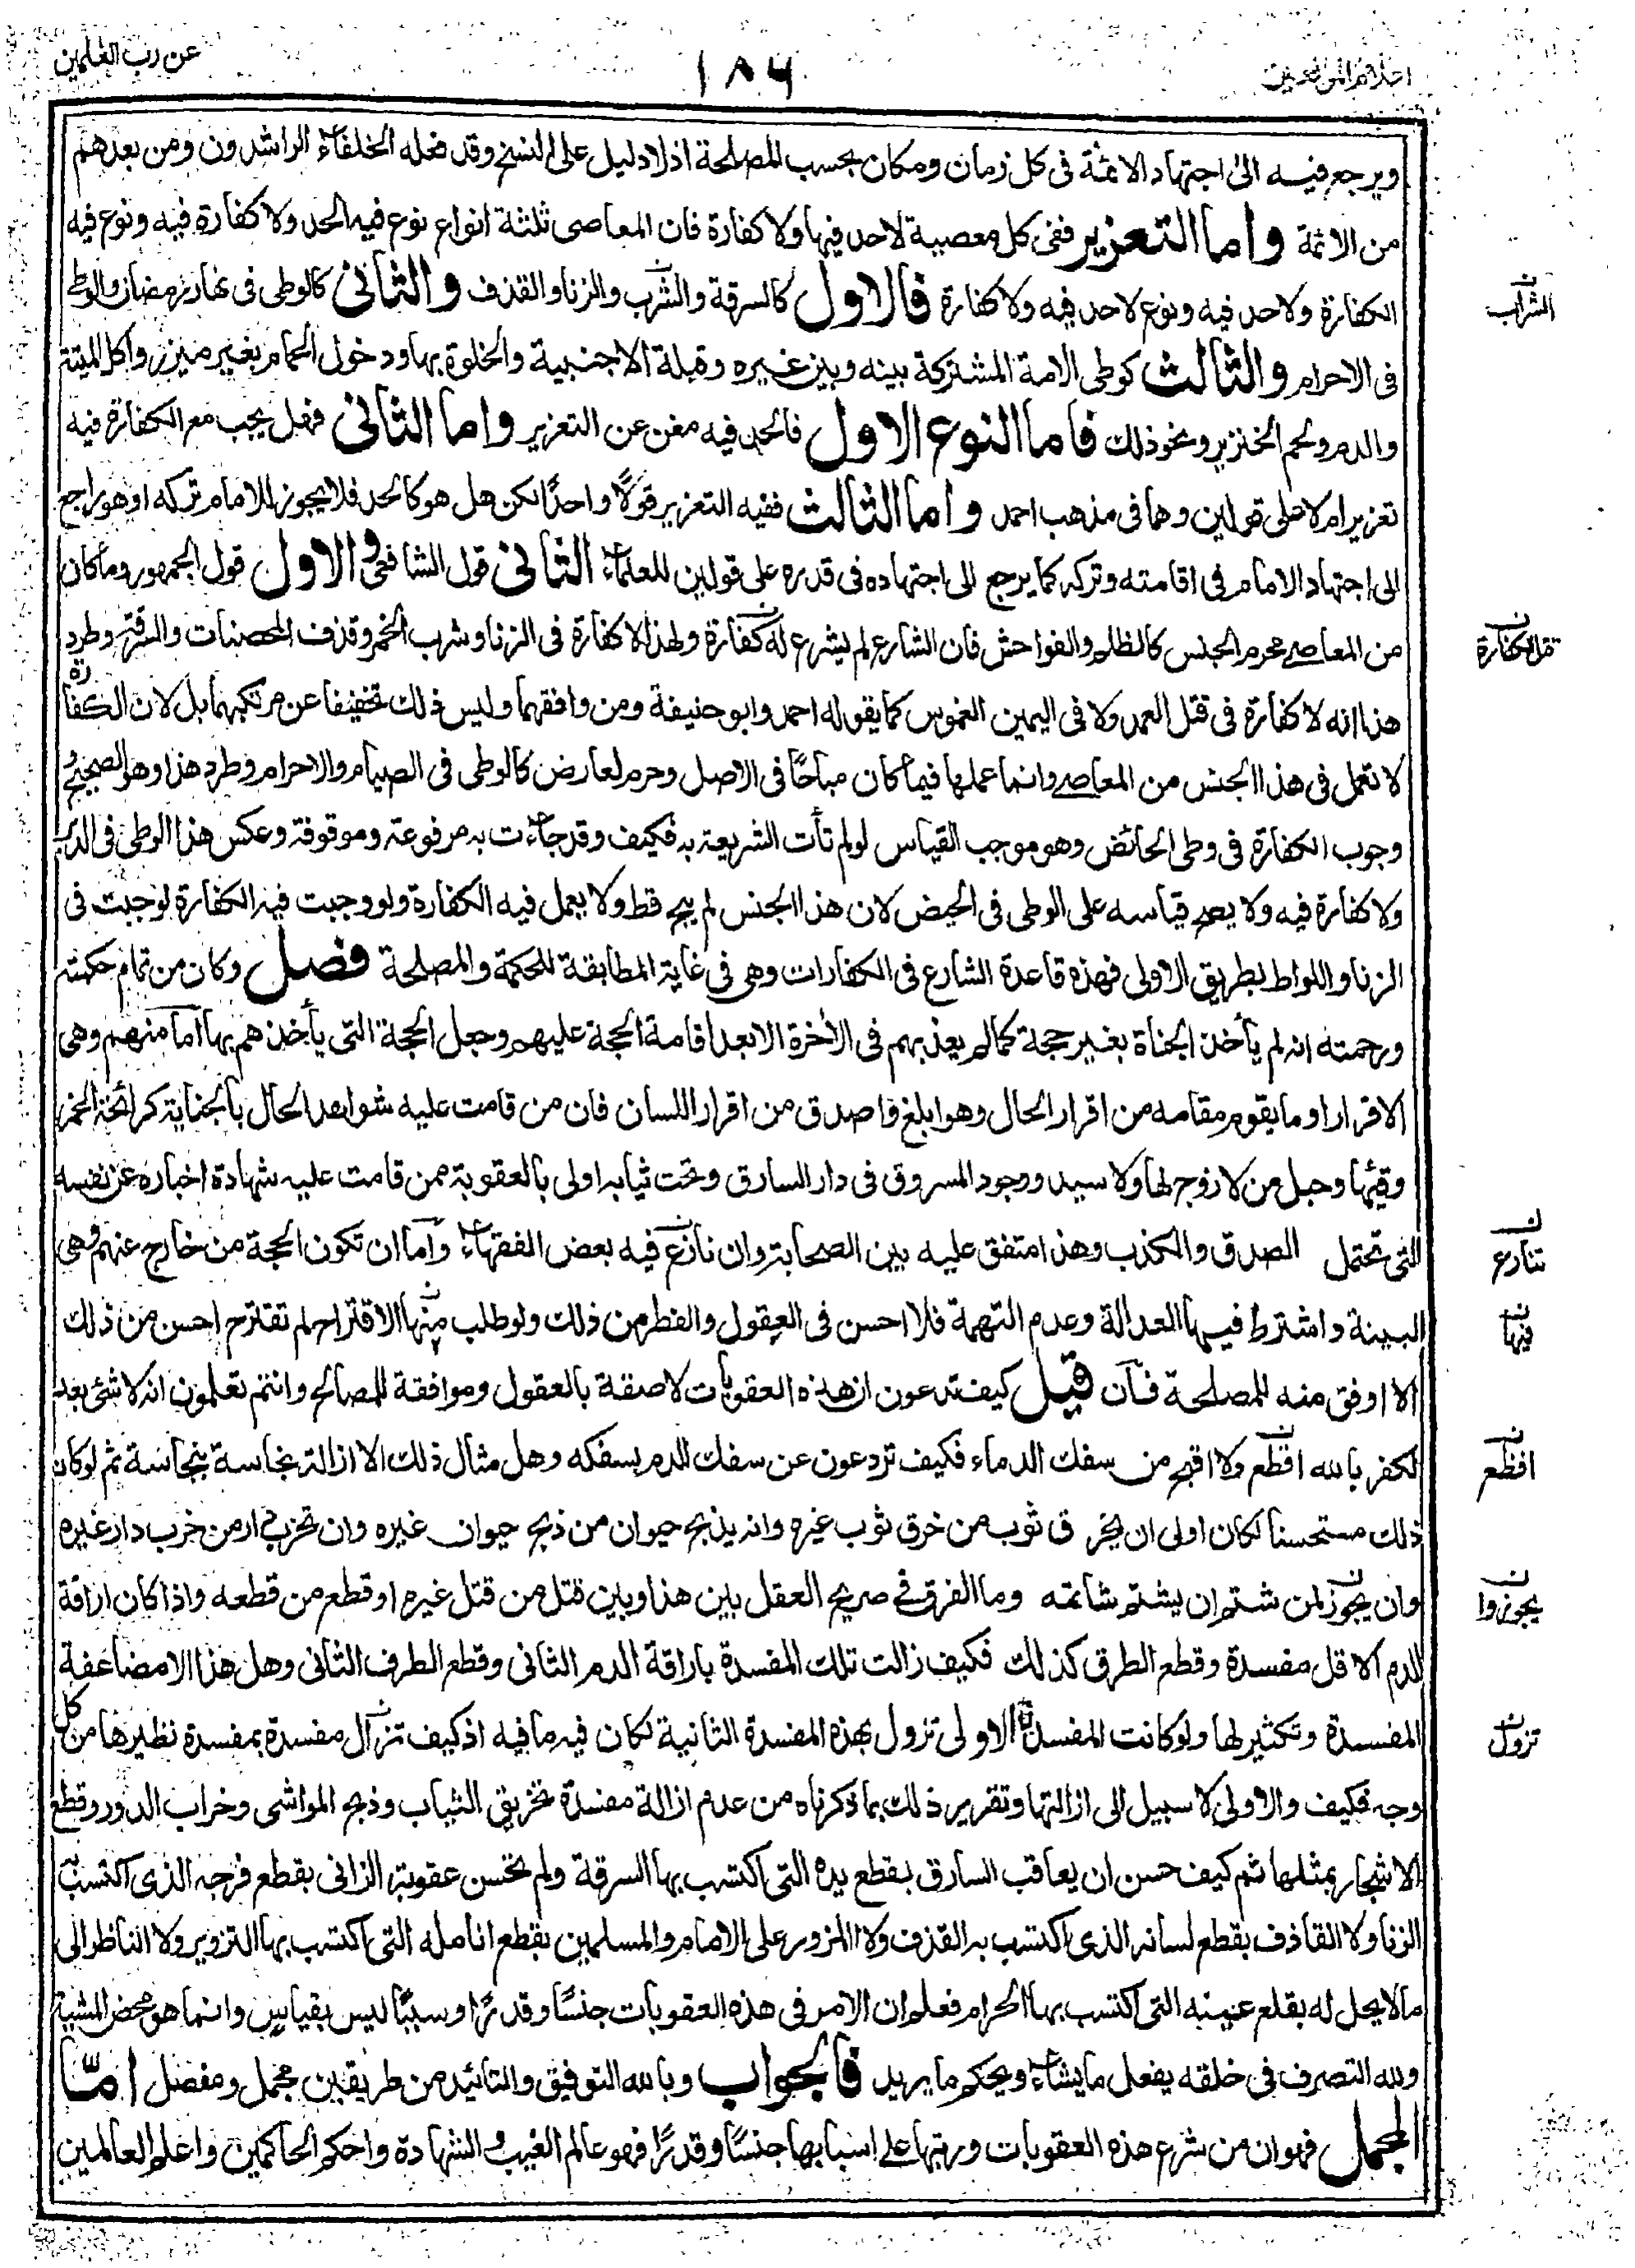 اعلام الموقعين
١٨٦
عن رب العلمين
ويرجع فيه الى اجتهاد الائمة فى كل زمان ومكان بحسب المصلحة اذ لا دليل على النسخ وقد فعله الخلفاء الراشدون ومن بعدهم
من الائمة واما التعزير ففى كل معصية لاحد فيها ولا كفارة فان المعاصى ثلثة انواع نوع فيه الحد ولا كفارة فيه ونوع فيه
الكفارة ولا حد فيه ونوع لاحد فيه ولا كفارة فالاول كالسرقة والشرب والزنا والقذف والثانى كالوطى فى نهار رمضان والوطى
فى الاحرام والثالث كوطى الامة المشتركة بينه وبين غيره وقبلة الاجنبية والخلوة بها ودخول الحمام بغير ميزر واكل الميتة
والدم ولحم الخنزير ونحو ذلك فاما النوع الاول فالحد فيه مغن عن التعزير واما الثانى فهل يجب مع الكفارة فيه
تعزير ام لا على قولين وهما فى مذهب احمد واما الثالث ففيه التعزير قولًا واحدًا لكن هل هو كالحد فلا يجوز للامام تركه او هو راجع
الى اجتهاد الامام فى اقامته وتركه كما يرجع الى اجتهاده فى قدره على قولين للعلماء الثانى قول الشافعى والاول قول الجمهور وما كان
من المعاصى محرم الجنس كالظلم والفواحش فان الشارع لم يشرع له كفارة ولهذا لا كفارة فى الزنا وشرب الخمر وقذف المحصنات والسرقة وطرد
هذا انه لا كفارة فى قتل العمد ولا فى اليمين الغموس كما يقوله احمد وابو حنيفة ومن وافقهما وليس ذلك تخفيفا عن مرتكبهما بل لان الكفارة
لا تعمل فى هذا الجنس من المعاصى وانما عملها فيما كان مباحًا فى الاصل وحرم لعارض كالوطى فى الصيام والاحرام وطرد هذا وهو الصحيح
وجوب الكفارة فى وطى الحائض وهو موجب القياس لو لم تأت الشريعة به فكيف وقد جاءت به مرفوعة وموقوفة وعكس هذا الوطى فى الدبر
ولا كفارة فيه ولا يصح قياسه على الوطى فى الحيض لان هذا الجنس لم يبح قط ولا يعمل فيه الكفارة ولو وجبت فيه الكفارة لوجبت فى
الزنا واللواط بطريق الاولى فهذه قاعدة الشارع فى الكفارات وهى فى غاية المطابقة للحكمة والمصلحة فصل وكان من تمام حكمته
ورحمته انه لم يأخذ الجناة بغير حجة كما لم يعذبهم فى الأخرة الا بعد اقامة الحجة عليهم وجعل الحجة التى يأخذهم بها اما منهم وهى
الاقرار او ما يقوم مقامه من اقرار الحال وهو ابلغ واصدق من اقرار اللسان فان من قامت عليه شواهد الحال بالجناية كرائحة الخمر
وقيئها وحبل من لا زوج لها ولا سيد ووجود المسروق فى دار السارق وتحت ثيابه اولى بالعقوبة ممن قامت عليه شهادة اخباره عن نفسه
التى تحتمل الصدق والكذب وهذا متفق عليه بين الصحابة وان نازع فيه بعض الفقهاء واما ان تكون الحجة من خارج عنهم وهى
البينة واشترط فيها العدالة وعدم التهمة فلا احسن فى العقول والفطر من ذلك ولو طلب منها الاقتراح لم تقترح احسن من ذلك
ولا اوفق منه للمصلحة فان قيل كيف تدعون ان هذه العقوبات لاصقة بالعقول وموافقة للمصالح وانتم تعلمون انه لا شئ بعد
الكفر بالله اقطع ولا اقبح من سفك الدماء فكيف تردعون عن سفك الدم بسفكه وهل مثال ذلك الا ازالة نجاسة بنجاسة ثم لو كان
ذلك مستحسنا لكان اولى ان يخرق ثوب من خرق ثوب غيره وانه يذبح حيوان من ذبح حيوان غيره وان تخرب دار من خرب دار غيره
وان يجوز لمن شتم ان يشتم شاتمه وما الفرق فى صريح العقل بين هذا وبين قتل من قتل غيره او قطع من قطعه واذا كان اراقة
الدم الاقل مفسدة وقطع الطرق كذلك فكيف زالت تلك المفسدة باراقة الدم الثانى وقطع الطرف الثانى وهل هذا الا مضاعفة
المفسدة وتكثير لها ولو كانت المفسدة الاولى تزول بهذه المفسدة الثانية لكان فيه ما فيه اذ كيف تزال مفسدة بمفسدة نظيرها من كل
وجه فكيف والاولى لا سبيل الى ازالتها وتقرير ذلك بما ذكرناه من عدم ازالة مفسدة تخريق الثياب وذبح المواشى وخراب الدور وقطع
الاشجار بمثلها ثم كيف حسن ان يعاقب السارق بقطع يده التى اكتسب بها السرقة ولم تحسن عقوبة الزانى بقطع فرجه الذى اكتسب به
الزنا ولا القاذف بقطع لسانه الذى اكتسب به القذف ولا المزور على الامام والمسلمين بقطع انامله التى اكتسب بها التزوير ولا الناظر الى
ما لا يحل له بقلع عينه التى اكتسب بها الحرام فعلم ان الامر فى هذه العقوبات جنسًا وقدرًا وسببًا ليس بقياس وانما هو محض المشية
ولله التصرف فى خلقه يفعل ما يشاء ويحكم ما يريد فالجواب وبالله التوفيق والتائيد من طريقين مجمل ومفصل امّا
المجمل فهو ان من شرع هذه العقوبات ورتبها على اسبابها جنسًا وقدرًا فهو عالم الغيب والشهادة واحكم الحاكمين واعلم العالمين
الشراب
تنازع
فيها
افظع
يجوزوا
تزول